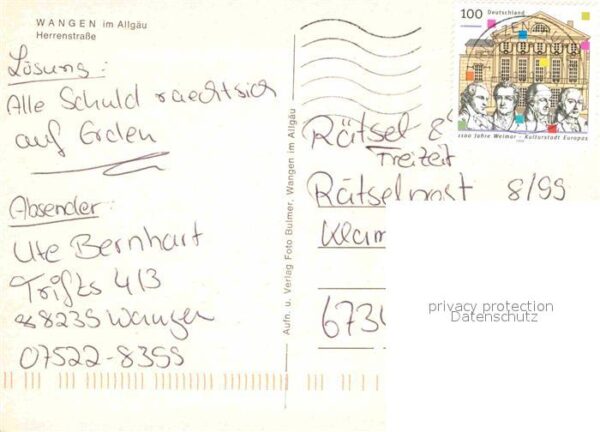 WANGEN im Allgäu
Herrenstraße
Lösung:
Alle Schuld raecht sich
auf Erden
Absender:
Ute Bernhart
88239 Wangen
Aufn. u. Verlag Foto Bulmer, Wangen im Allgäu
100 Deutschland
1100 Jahre Weimar - Kulturstadt Europas
Rätsel
Freizeit
Rätselpost 8/99
privacy protection
Datenschutz